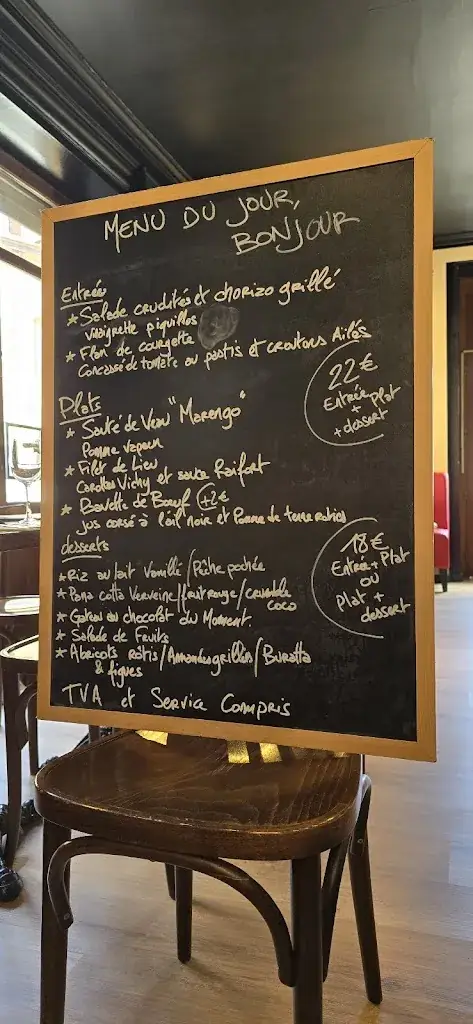 MENU DU JOUR,
BONJOUR
Entrée
* Salade crudités et chorizo grillé
vinaigrette piquillos
* Flan de courgette
Concassé de tomate au pastis et croutons Ailés
22€
Entrée + Plat
+ dessert
Plats
* Sauté de Veau "Marengo"
Pomme vapeur
* Filet de Lieu
Carottes Vichy et sauce Raifort
* Bavette de Bœuf (+2€)
jus corsé à l'ail noir et Pomme de terre roties
18€
Entrée + Plat
ou
Plat +
dessert
desserts
* Riz au lait Vanille / Pêche pochée
* Pana cotta Verveine / fruit rouge / crumble
coco
* Gateau au chocolat du Moment
* Salade de Fruits
* Abricots rotis / Amandes grillées / Buratta
& figues
TVA et Service Compris